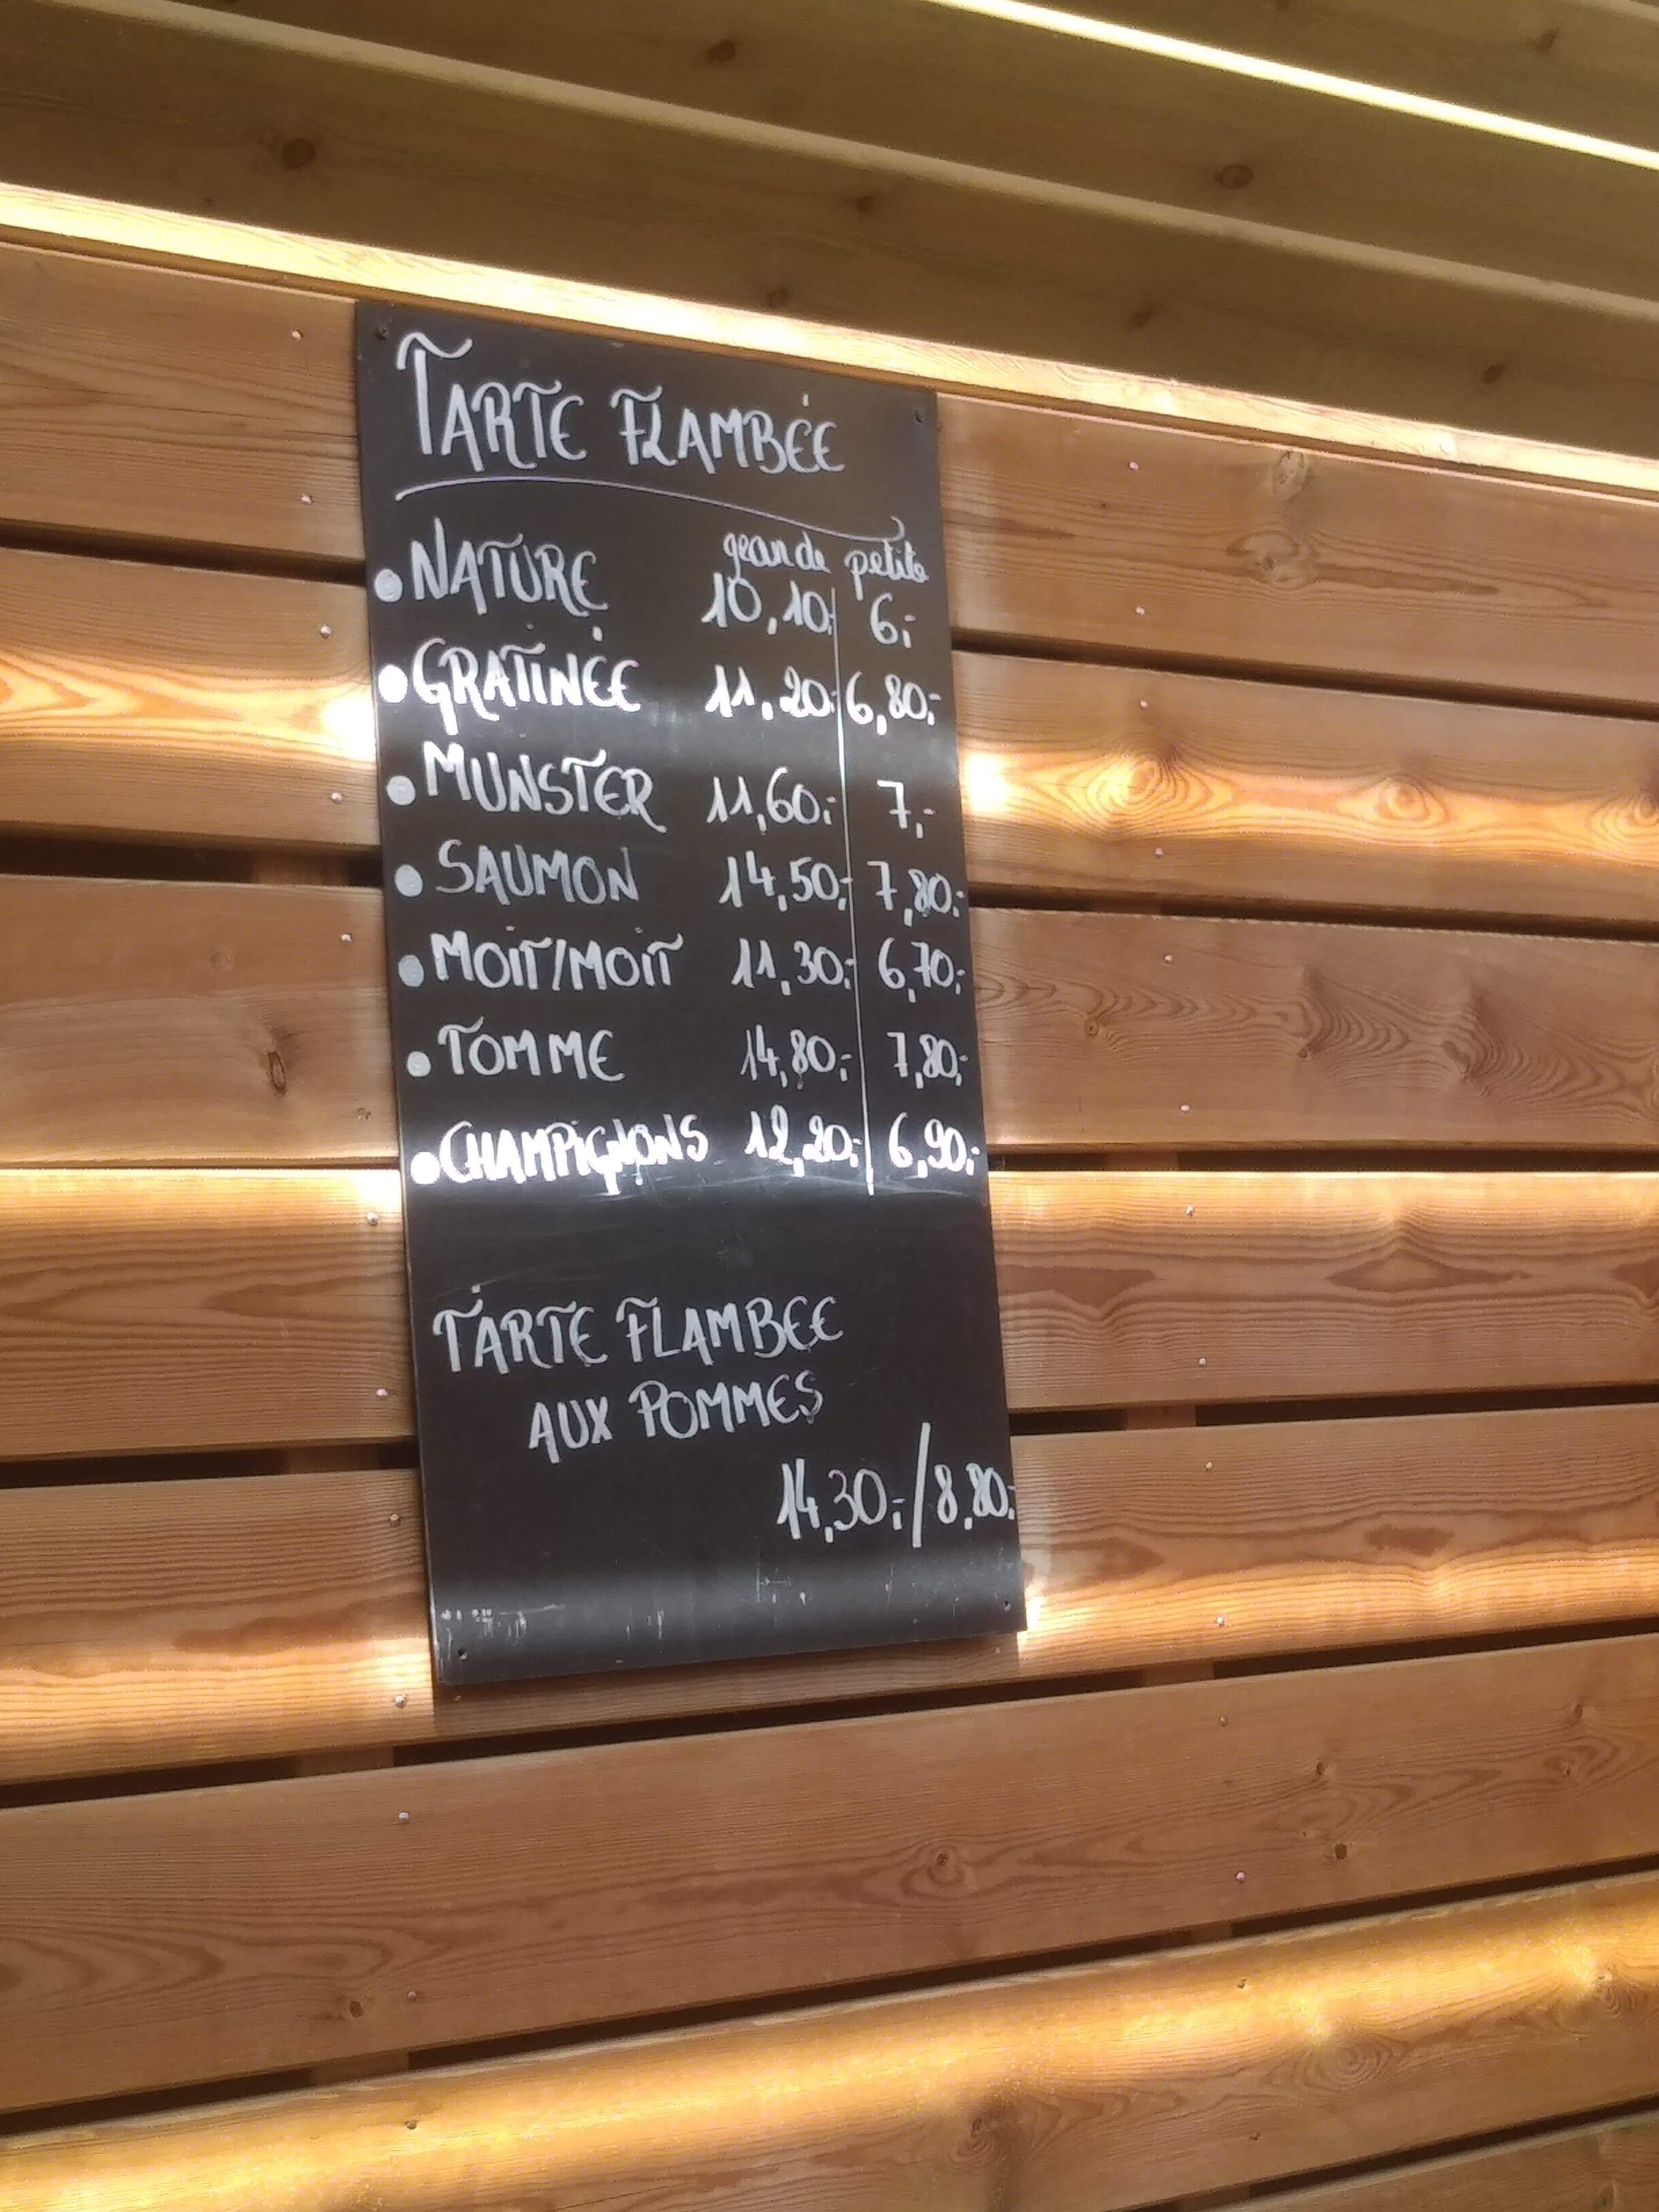 TARTE FLAMBÉE
grande petite
• NATURE 10,10.- 6.-
• GRATINÉE 11,20.- 6,80.-
• MUNSTER 11,60.- 7,-
• SAUMON 14,50.- 7,80.-
• MOIT/MOIT 11,30.- 6,70.-
• TOMME 14,80.- 7,80.-
• CHAMPIGNONS 12,20.- 6,90.-
TARTE FLAMBEE
AUX POMMES
14,30.-/8,80.-